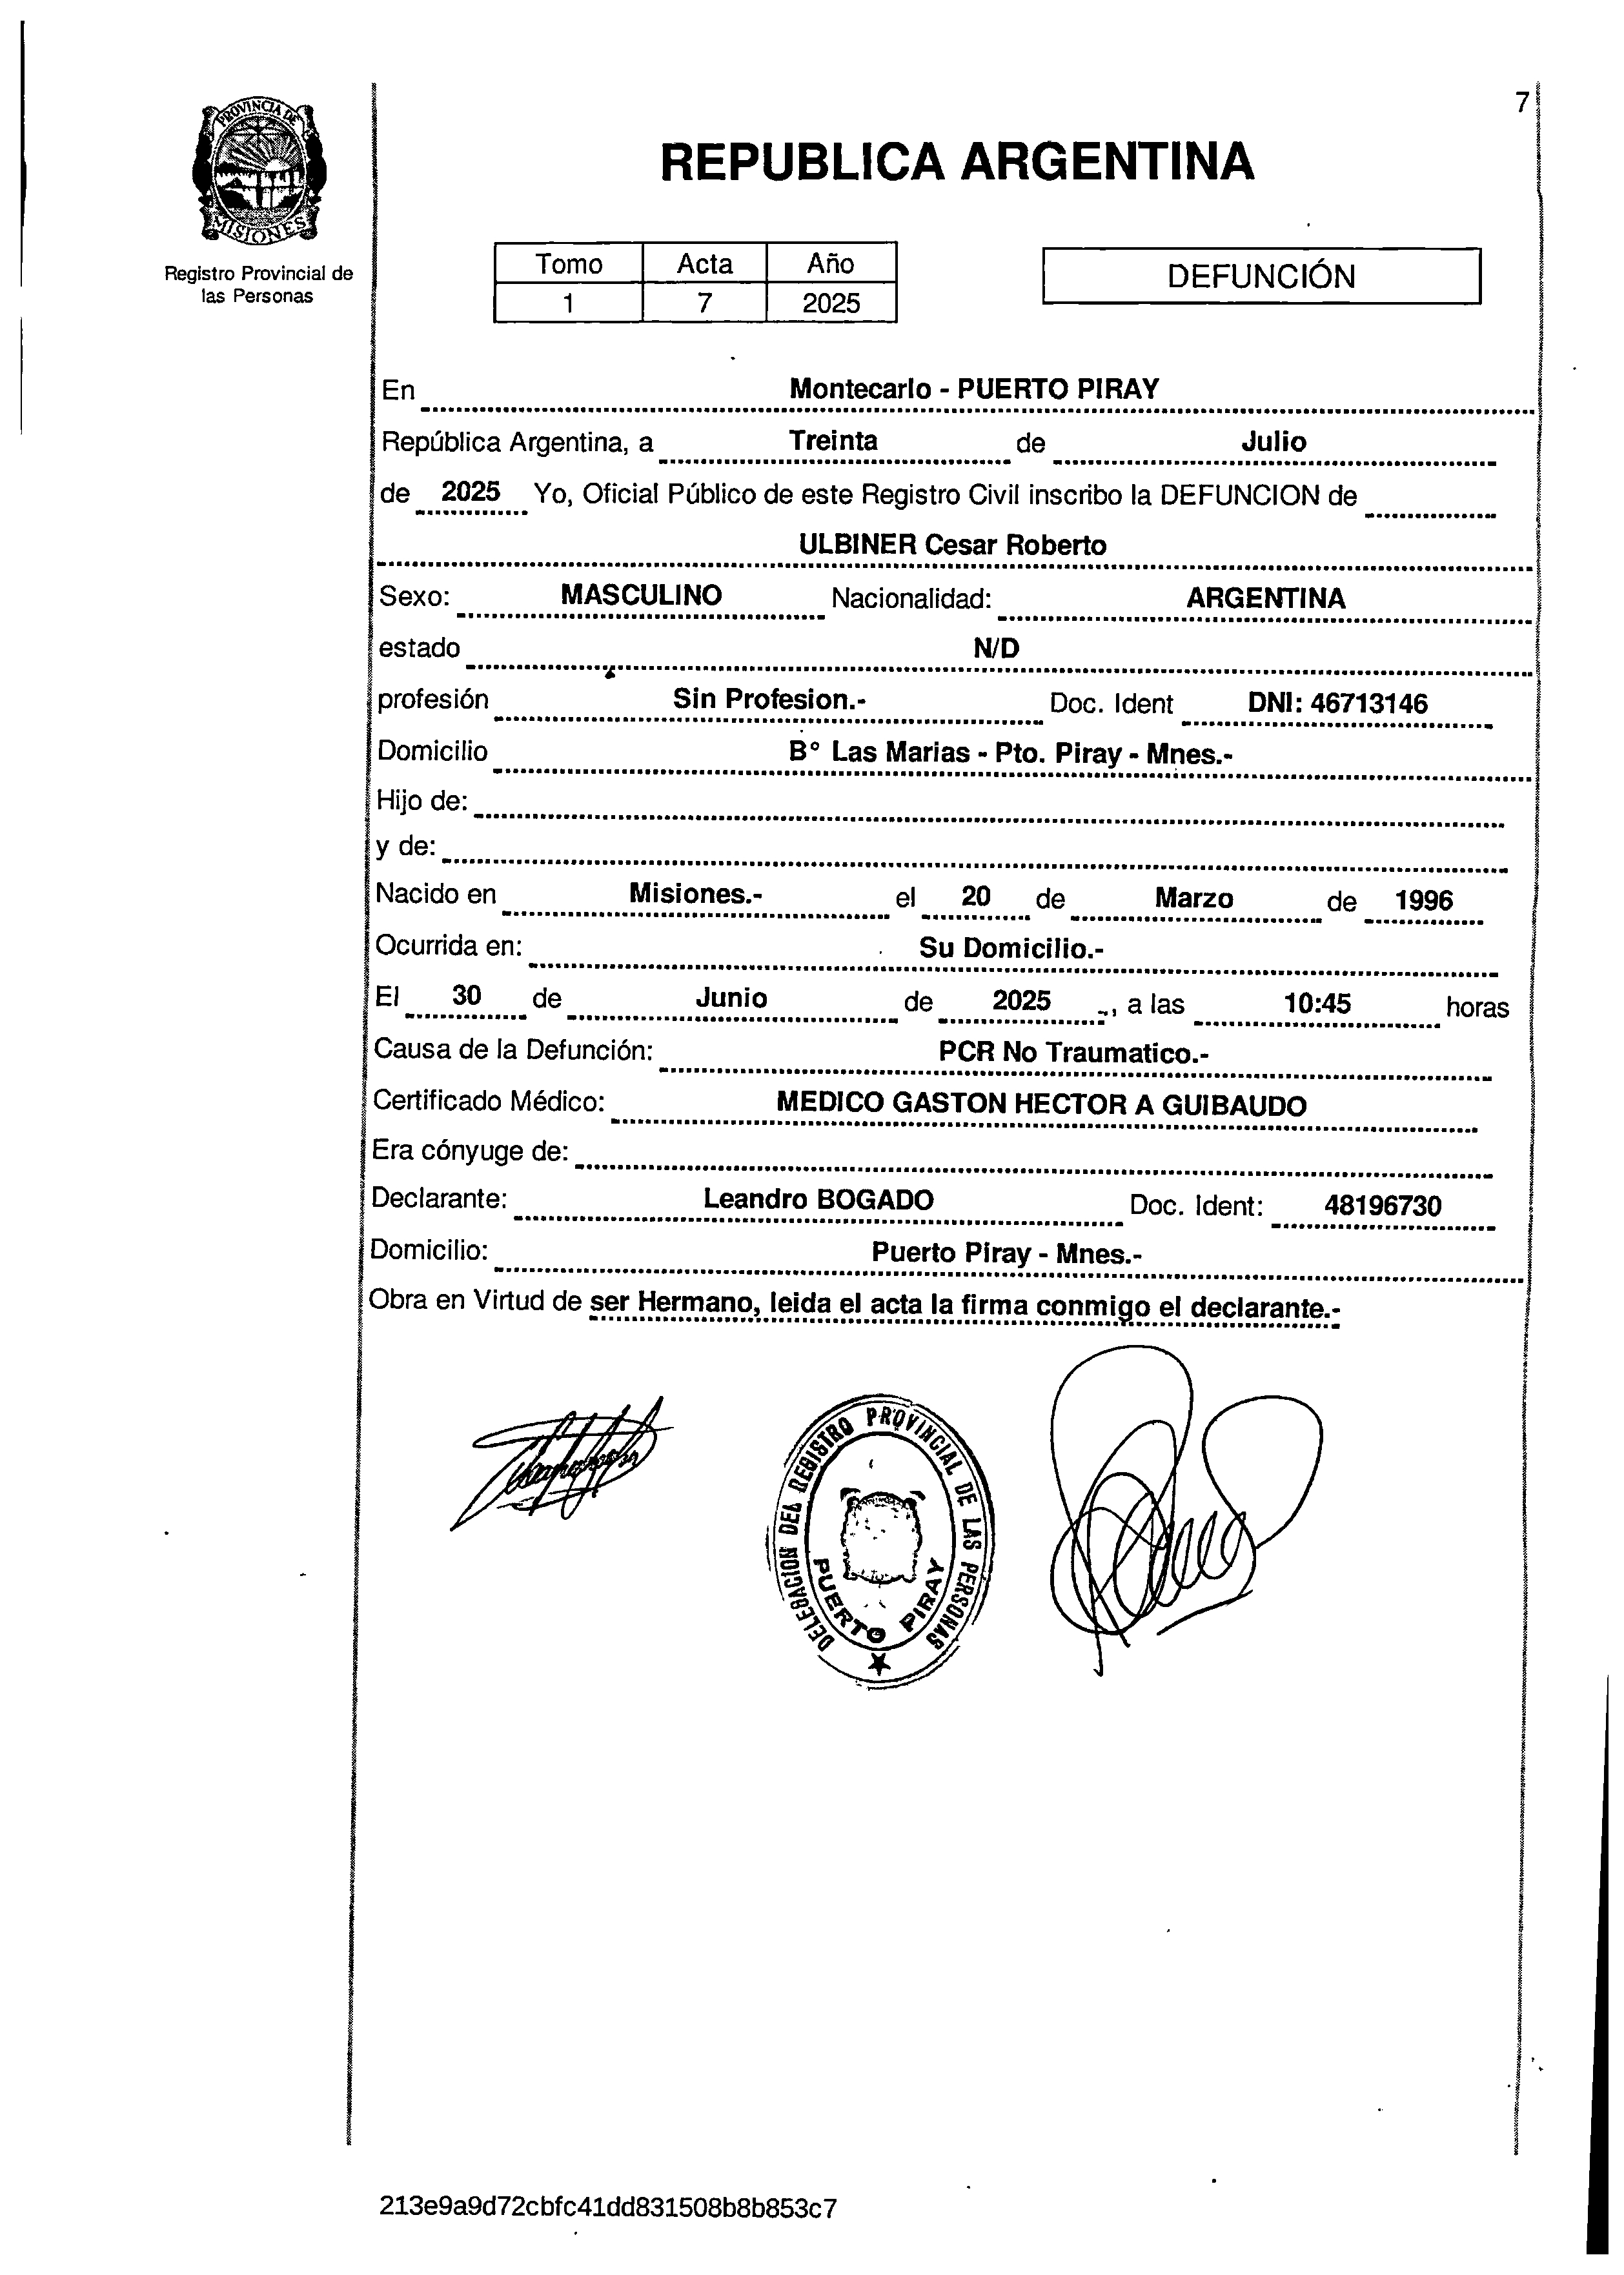 7
PROVINCIA DE
MISIONES
Registro Provincial de
las Personas
REPUBLICA ARGENTINA
Tomo Acta Año
1 7 2025
DEFUNCIÓN
En Montecarlo - PUERTO PIRAY
República Argentina, a Treinta de Julio
de 2025 Yo, Oficial Público de este Registro Civil inscribo la DEFUNCION de
ULBINER Cesar Roberto
Sexo: MASCULINO Nacionalidad: ARGENTINA
estado N/D
profesión Sin Profesion.- Doc. Ident DNI: 46713146
Domicilio B° Las Marias - Pto. Piray - Mnes.-
Hijo de:
y de:
Nacido en Misiones.- el 20 de Marzo de 1996
Ocurrida en: Su Domicilio.-
El 30 de Junio de 2025 -, a las 10:45 horas
Causa de la Defunción: PCR No Traumatico.-
Certificado Médico: MEDICO GASTON HECTOR A GUIBAUDO
Era cónyuge de:
Declarante: Leandro BOGADO Doc. Ident: 48196730
Domicilio: Puerto Piray - Mnes.-
Obra en Virtud de ser Hermano, leida el acta la firma conmigo el declarante.-
DELEGACION DEL REGISTRO PROVINCIAL DE LAS PERSONAS
PUERTO PIRAY
213e9a9d72cbfc41dd831508b8b853c7